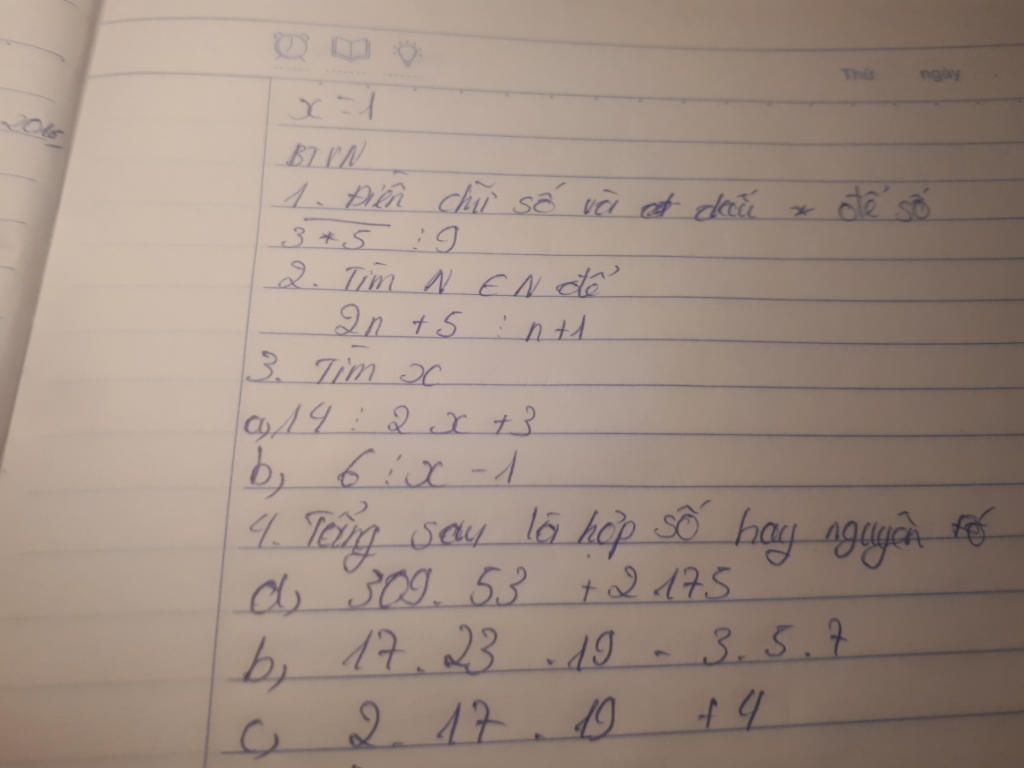 Thứ ngày
2015
x = 1
BTVN
1. Điền chữ số vào dấu * để số
3*5 ⋮ 9
2. Tìm N ∈ N để
2n + 5 ⋮ n+1
3. Tìm x
a, 14 ⋮ 2x + 3
b, 6 ⋮ x - 1
4. Tổng sau là hợp số hay nguyên tố
a, 309. 53 + 2175
b, 17. 23 . 19 - 3. 5. 7
c, 2. 17. 19 + 4